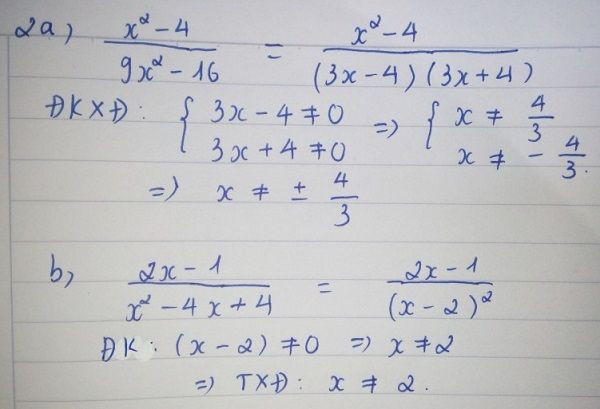 2a) (x² - 4)/(9x² - 16) = (x² - 4)/((3x - 4)(3x + 4))
ĐKXĐ: { 3x - 4 ≠ 0 => { x ≠ 4/3
3x + 4 ≠ 0 x ≠ - 4/3.
=> x ≠ ± 4/3
b) (2x - 1)/(x² - 4x + 4) = (2x - 1)/(x - 2)²
ĐK: (x - 2) ≠ 0 => x ≠ 2
=> TXĐ: x ≠ 2.